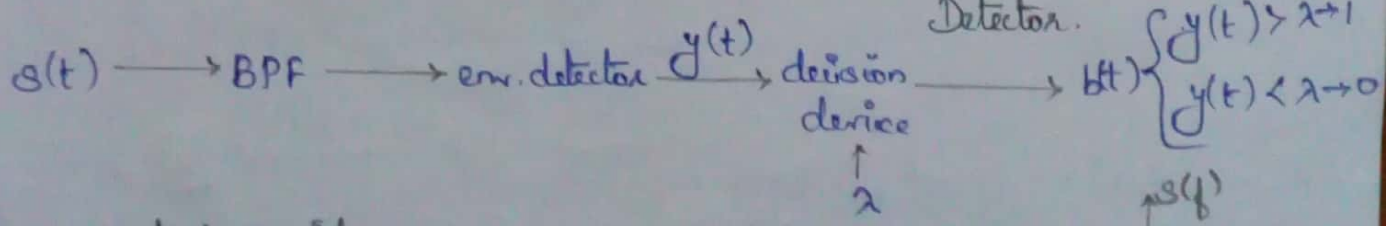 Detector.
s(t) → BPF → env. detector y(t) → decision device → b(t) { y(t) > λ → 1
y(t) < λ → 0
↑
λ
s(f)